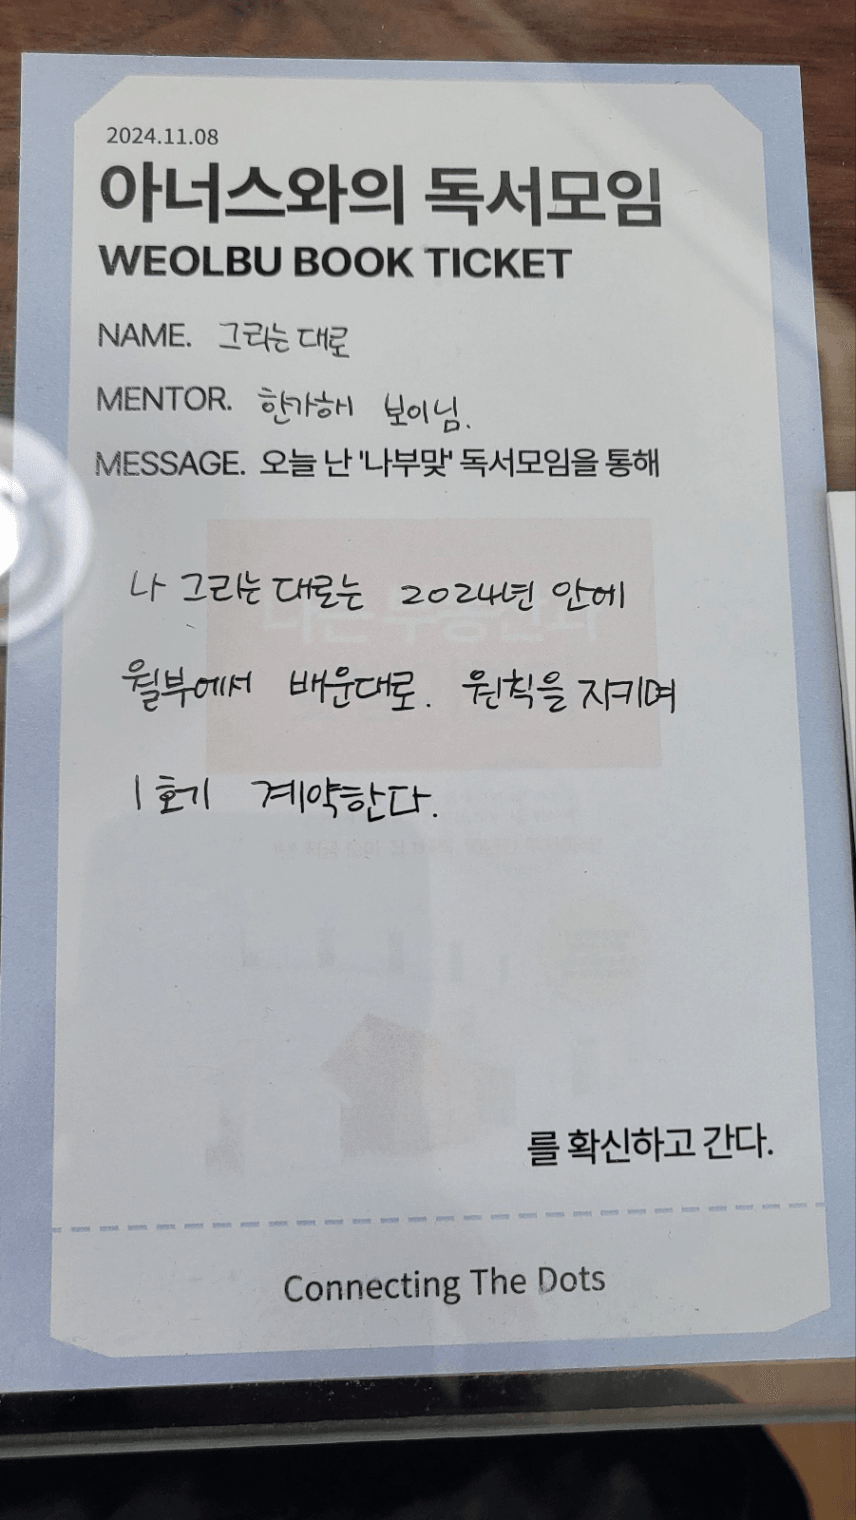 2024.11.08
아너스와의 독서모임
WEOLBU BOOK TICKET
NAME. 그리는대로
MENTOR. 한가해보이님.
MESSAGE. 오늘 난 '나부맞' 독서모임을 통해
나 그리는대로는 2024년 안에
월부에서 배운대로. 원칙을 지키며
1호기 계약한다.
를 확신하고 간다.
Connecting The Dots